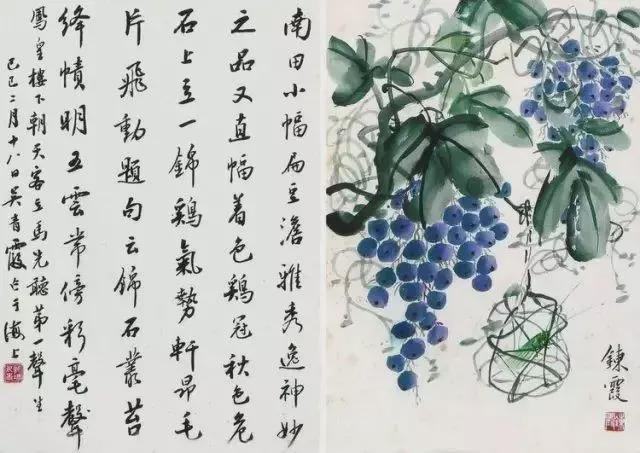 南田小幅扁豆澹雅秀逸神妙
之品又直幅着色鷄冠秋色危
石上立一錦鷄氣勢軒昂毛
片飛動題句云錦石叢苔
絳幘明五雲常傍彩毫聲
鳳皇樓下朝天客立馬先聽第一聲生
己巳二月十八日吴青霞书于海上
鍊霞